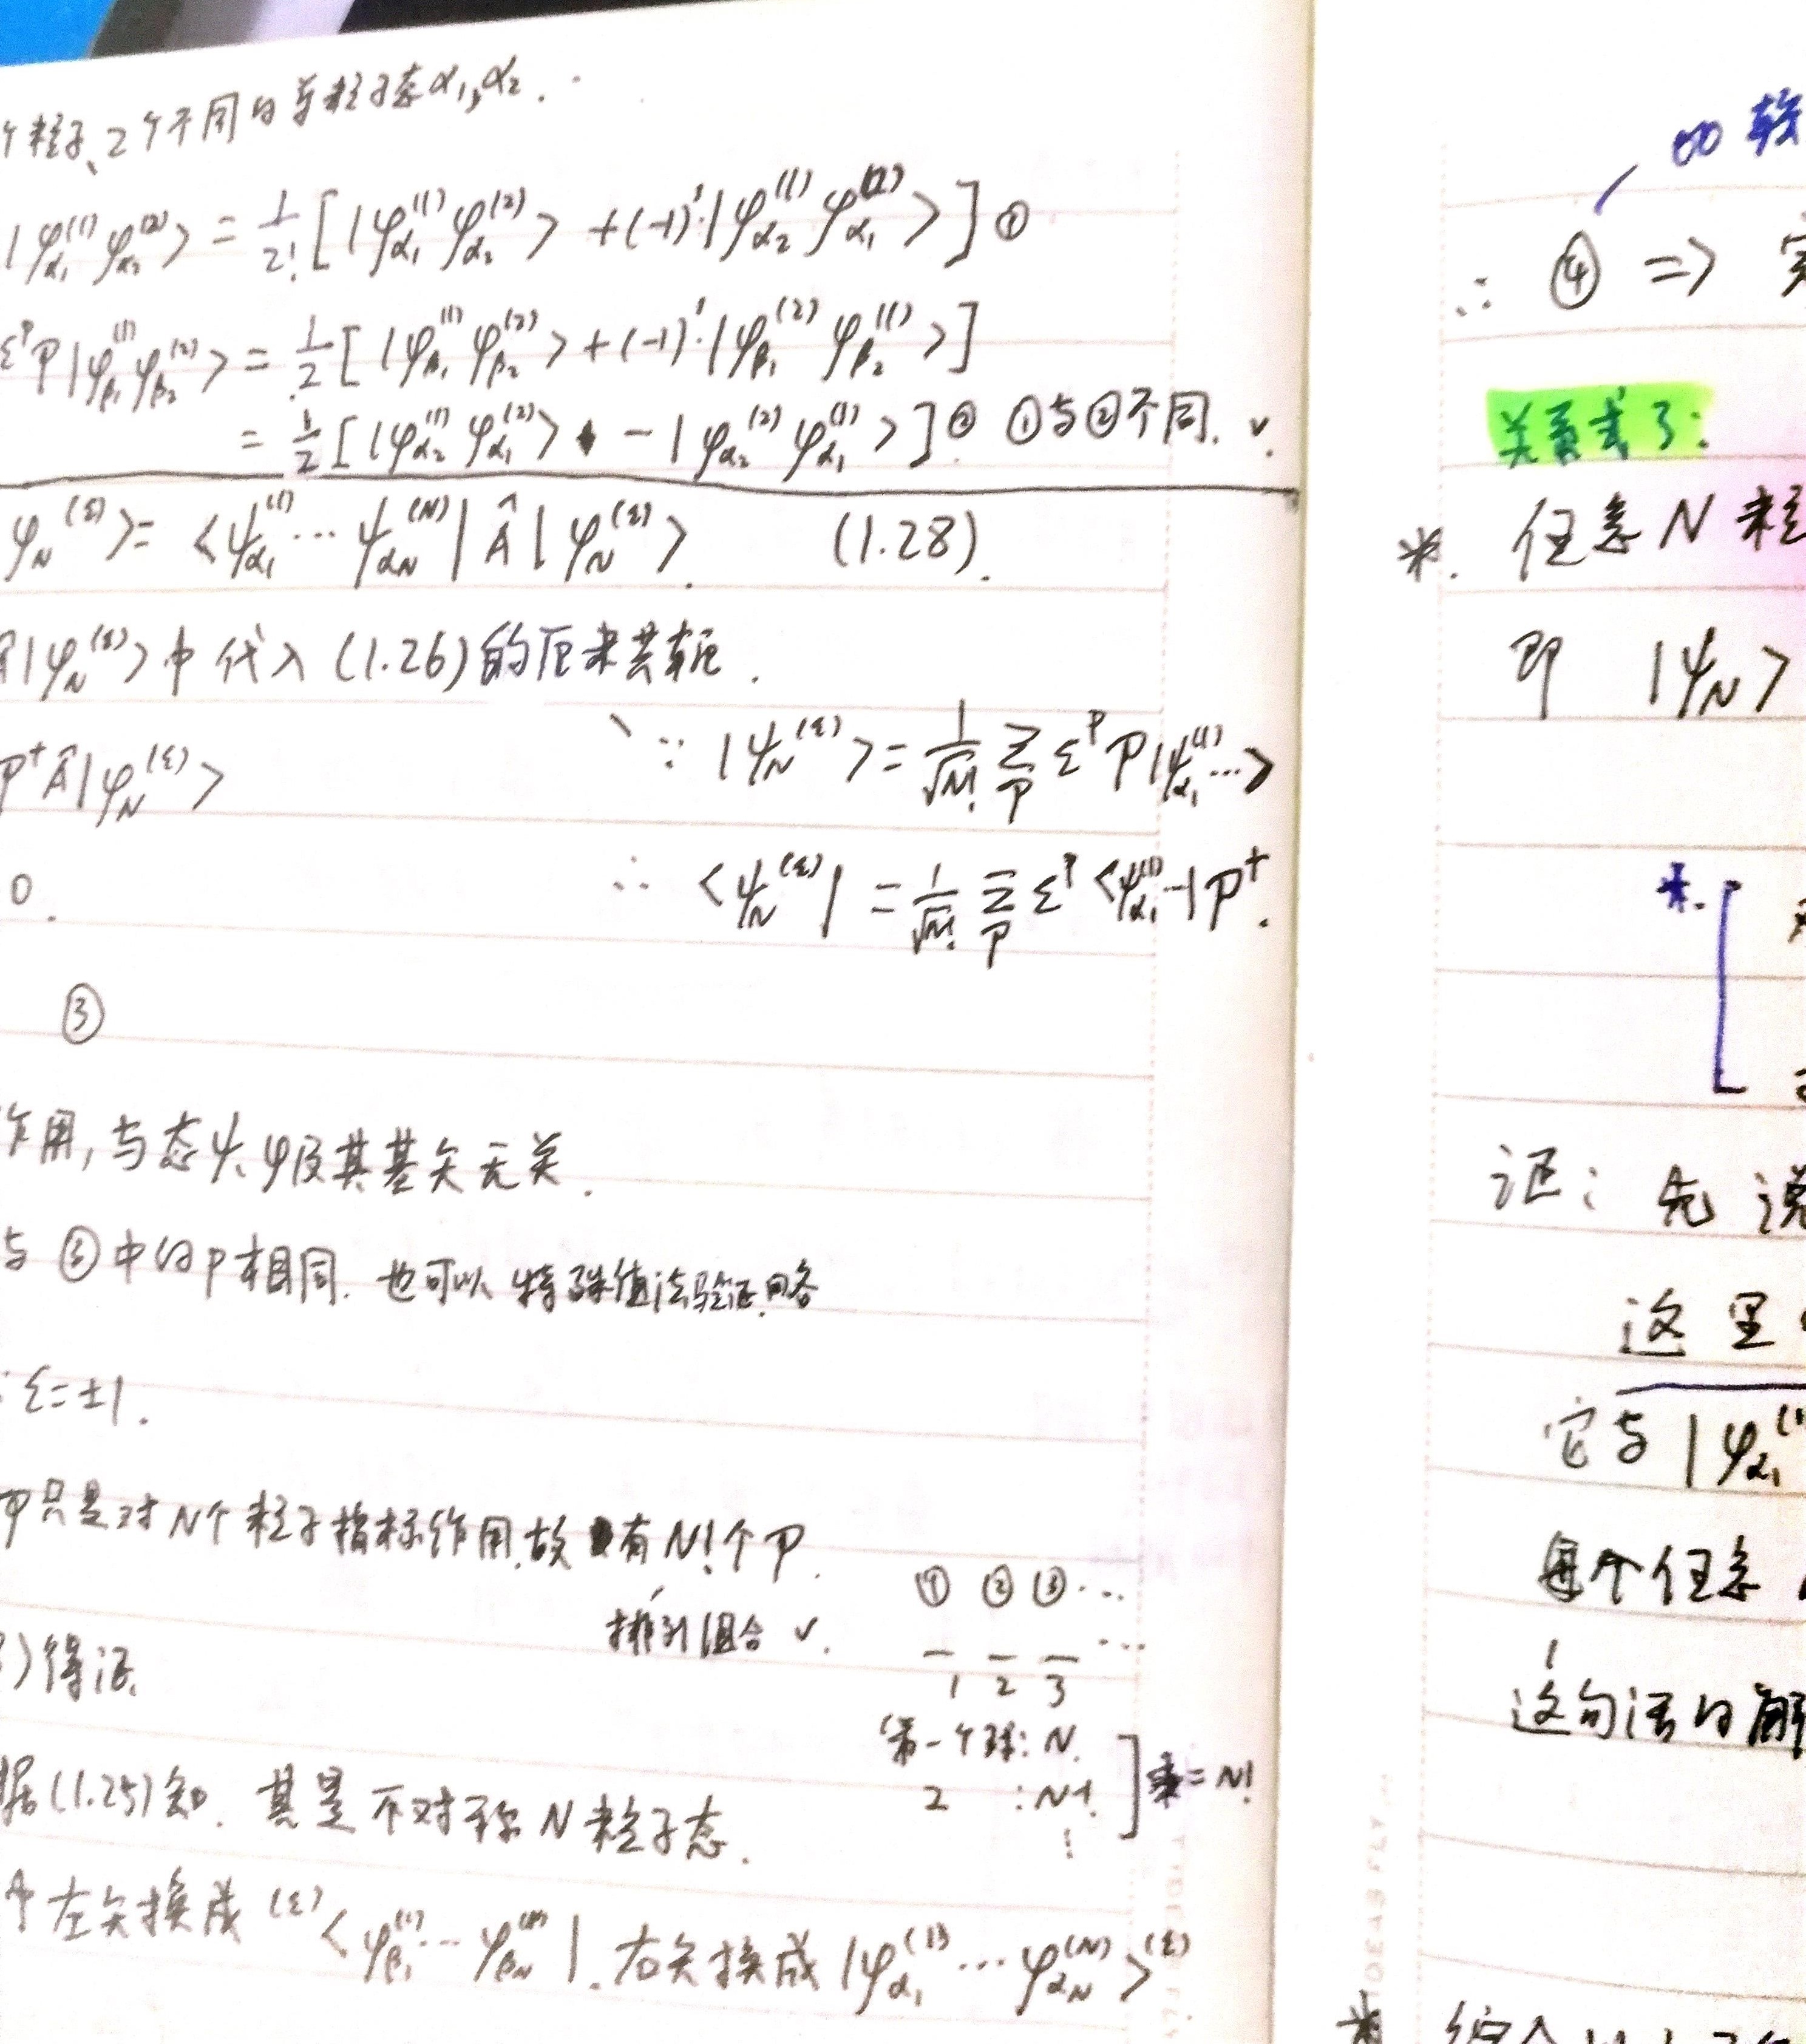 个粒子、2个不同的单粒子态α₁,α₂.
|φ_{α₁}^{(1)} φ_{α₂}^{(2)}> = 1/2! [|φ_{α₁}^{(1)} φ_{α₂}^{(2)}> + (-1)¹·|φ_{α₂}^{(1)} φ_{α₁}^{(2)}>] ①
ε^P P|φ_{β₁}^{(1)} φ_{β₂}^{(2)}> = 1/2 [|φ_{β₁}^{(1)} φ_{β₂}^{(2)}> + (-1)¹·|φ_{β₁}^{(2)} φ_{β₂}^{(1)}>]
= 1/2 [|φ_{α₂}^{(1)} φ_{α₁}^{(2)}> - |φ_{α₂}^{(2)} φ_{α₁}^{(1)}>] ② ①与②不同. ✓
φ_N^{(ε)}> = <ψ_{α₁}^{(1)} … ψ_{αN}^{(N)}| Â |φ_N^{(ε)}> . (1.28).
|φ_N^{(ε)}>中代入(1.26)的厄米共轭.
P⁺Â|φ_N^{(ε)}>
∵ |ψ_N^{(ε)}> = 1/√N! Σ_P ε^P P|ψ_{α₁}^{(1)}…>
0.
∴ <ψ_N^{(ε)}| = 1/√N! Σ_P ε^P <ψ_{α₁}^{(1)}…|P⁺.
③
作用,与态ψ、φ及其基矢无关.
与③中的P相同. 也可以特殊值法验证.略
ε=±1.
P只是对N个粒子指标作用.故有N!个P.
排列组合 ✓.
① ② ③ …
1 2 3 …
)得证.
第一个球: N.
2 : N-1.
⋮
] 乘=N!
据(1.25)知. 其是不对称N粒子态.
中左矢换成 ^{(ε)}<φ_{β₁}^{(1)}…φ_{βN}^{(N)}|. 右矢换成|φ_{α₁}^{(1)}…φ_{αN}^{(N)}>^{(ε)}
∴ ④ =>
*. 任意N粒
即 |ψ_N>
*.
证: 先说
这里
它与|φ_{α₁}^{(1)}
每个任意
这句话的解